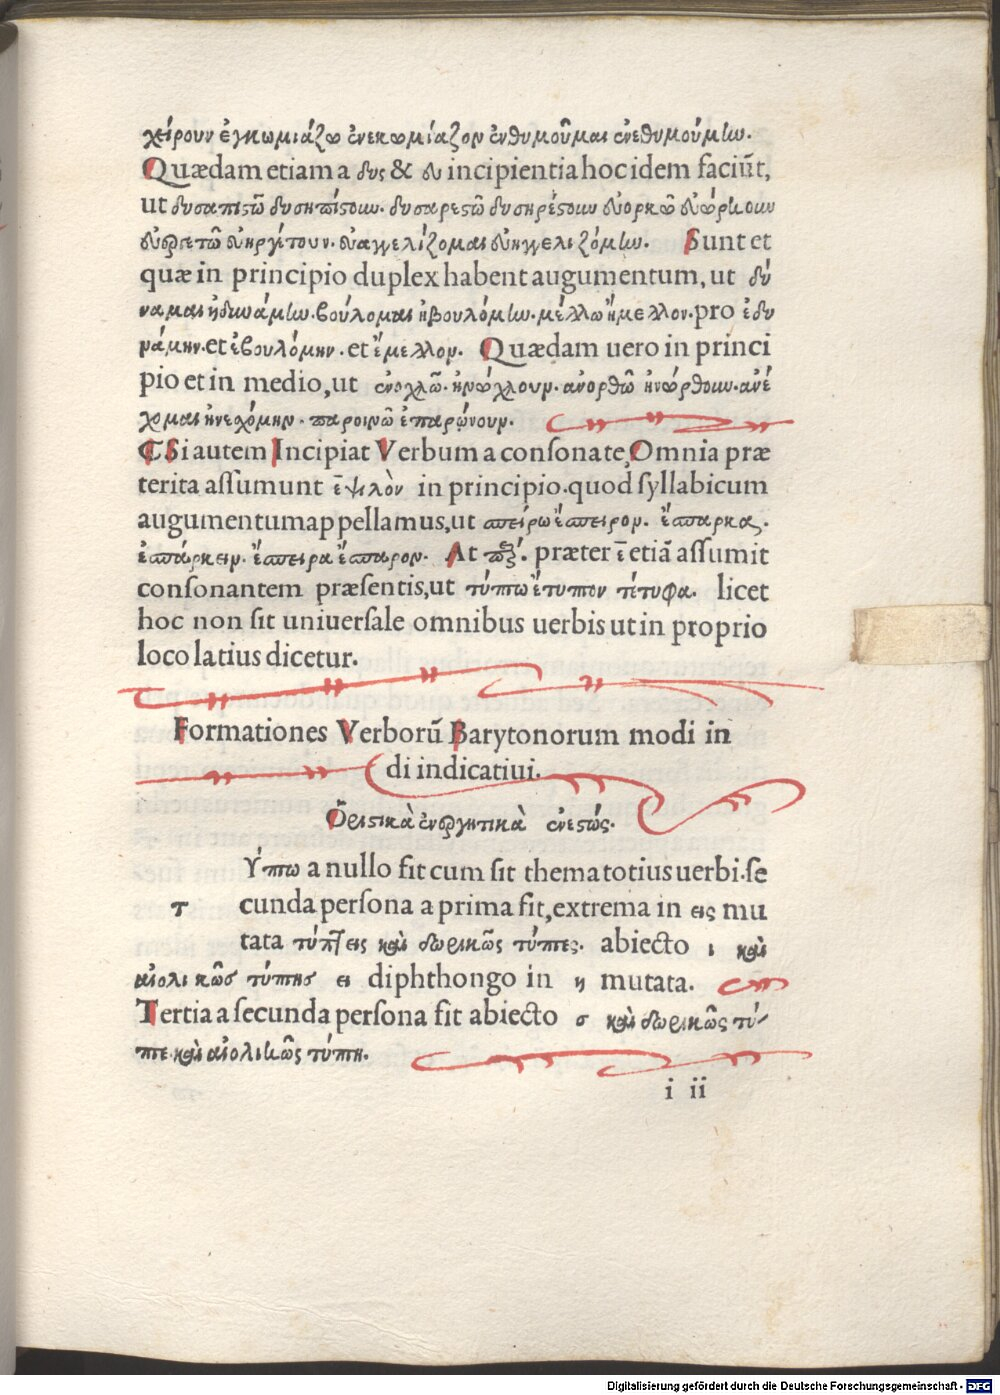 χείρουν ἐγκωμιάζω ἐνεκωμίαζον ἐνθυμοῦμαι ἐνεθυμούμην.
Quædam etiam a δυς & ευ incipientia hoc idem faciūt,
ut δυσαπιστῶ δυσηπίστουν. δυσαρεστῶ δυσηρέστουν εὐορκῶ εὐώρκουν
εὐεργετῶ εὐηργέτουν. εὐαγγελίζομαι εὐηγγελιζόμην. Sunt et
quæ in principio duplex habent augumentum, ut δύ
ναμαι ἠδυνάμην. βούλομαι ἠβουλόμην. μέλλω ἤμελλον. pro ἐδυ
νάμην. et ἐβουλόμην. et ἔμελλον. Quædam uero in princi
pio et in medio, ut ἐνοχλῶ. ἠνώχλουν. ἀνορθῶ ἠνώρθουν. ἀνέ
χομαι ἠνεχόμην. παροινῶ ἐπαρώνουν.
Si autem Incipiat Verbum a consonate, Omnia præ
terita assumunt ἒψιλὸν in principio. quod syllabicum
augumentum appellamus, ut σπείρω ἔσπειρον. ἔσπαρκα.
ἐσπάρκειν. ἔσπειρα ἔσπαρον. At præter ε etiā assumit
consonantem præsentis, ut τύπτω ἔτυπτον τέτυφα. licet
hoc non sit uniuersale omnibus uerbis ut in proprio
loco latius dicetur.
Formationes Verborū Barytonorum modi in
di indicatiui.
Ὁριστικὰ ἐνεργητικὰ ἐνεστώς.
Ύπτω a nullo fit cum sit thema totius uerbi. se
τ cunda persona a prima fit, extrema in εις mu
tata τύπτεις καὶ δωρικῶς τύπτες. abiecto ι καὶ
αἰολικῶσ τύπτησ ει diphthongo in η mutata.
Tertia a secunda persona fit abiecto σ καὶ δωρικῶς τύ-
πτε. καὶ αἰολικῶς τύπτη.
i ii
Digitalisierung gefördert durch die Deutsche Forschungsgemeinschaft - DFG